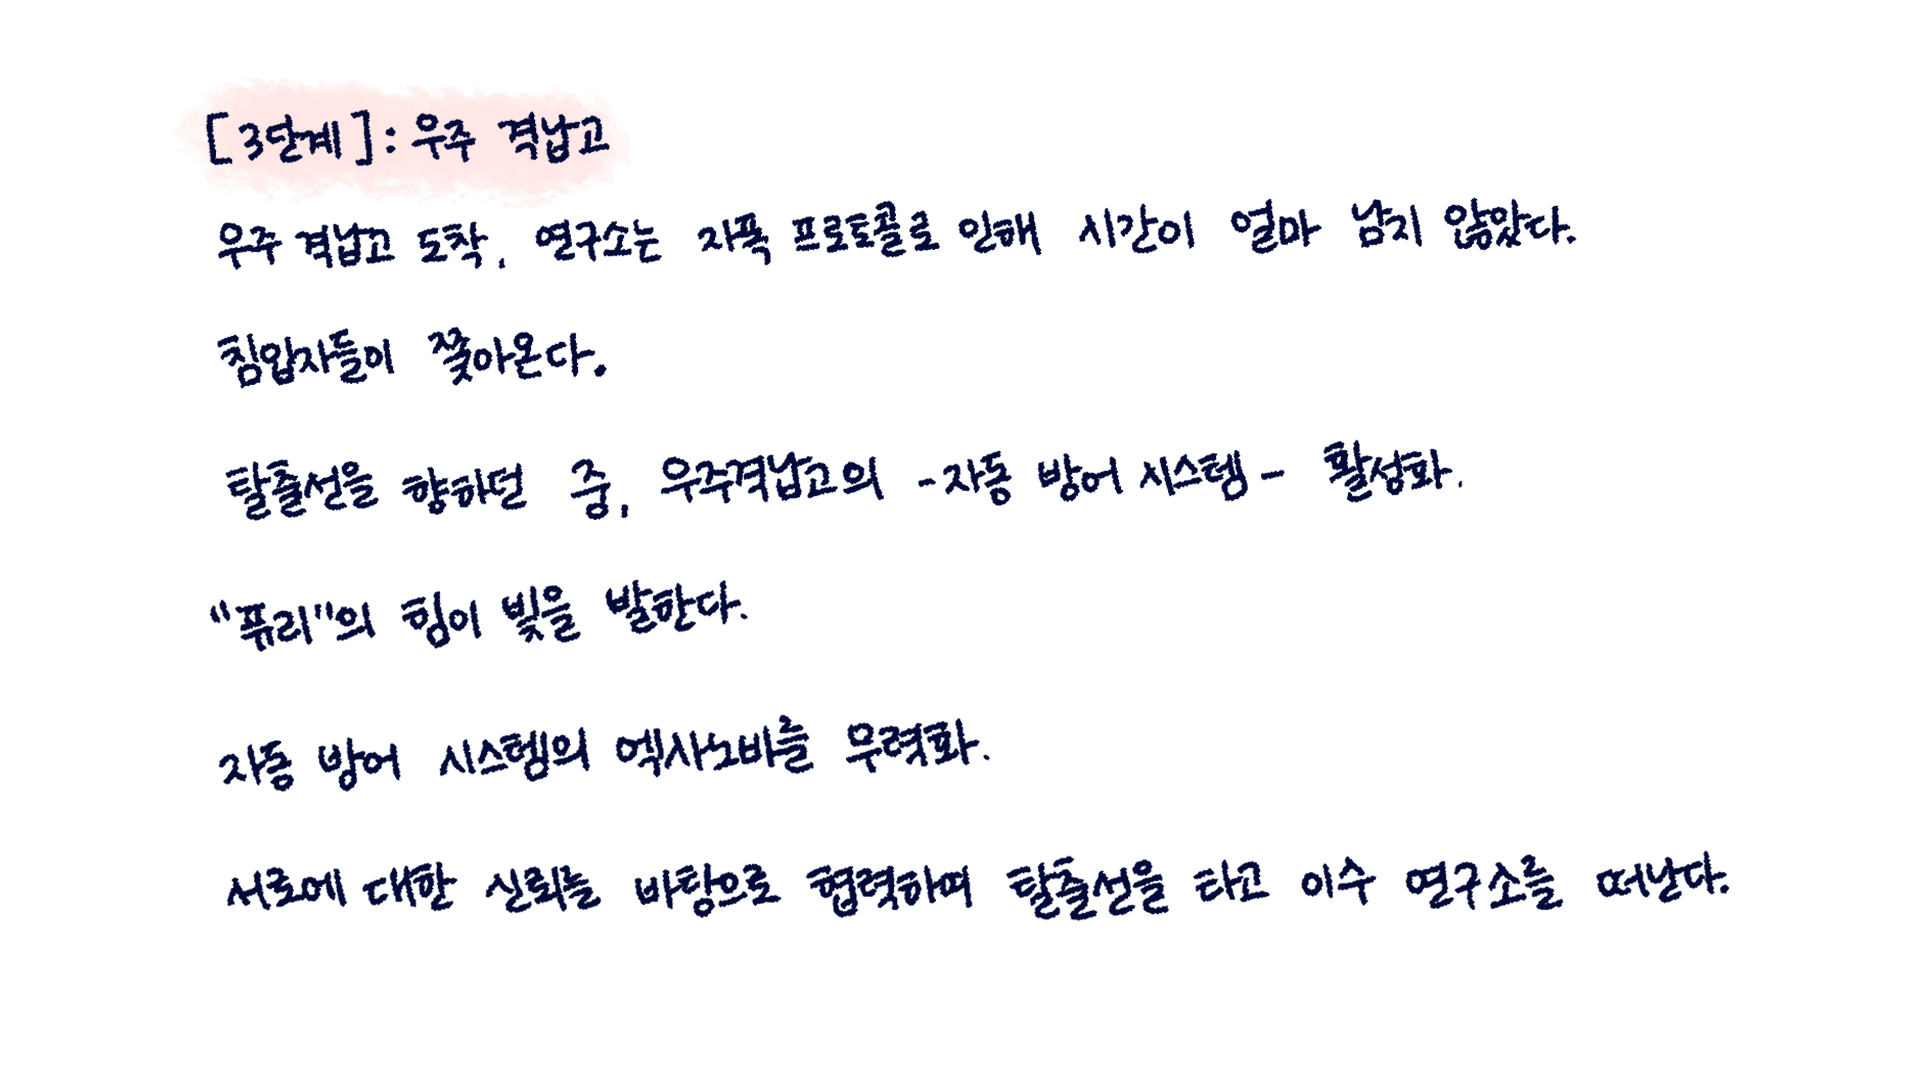 [3단계]: 우주 격납고
우주 격납고 도착, 연구소는 자폭 프로토콜로 인해 시간이 얼마 남지 않았다.
침입자들이 쫓아온다.
탈출선을 향하던 중, 우주격납고의 -자동 방어 시스템- 활성화.
"퓨리"의 힘이 빛을 발한다.
자동 방어 시스템의 엑사노바를 무력화.
서로에 대한 신뢰를 바탕으로 협력하며 탈출선을 타고 이수 연구소를 떠난다.